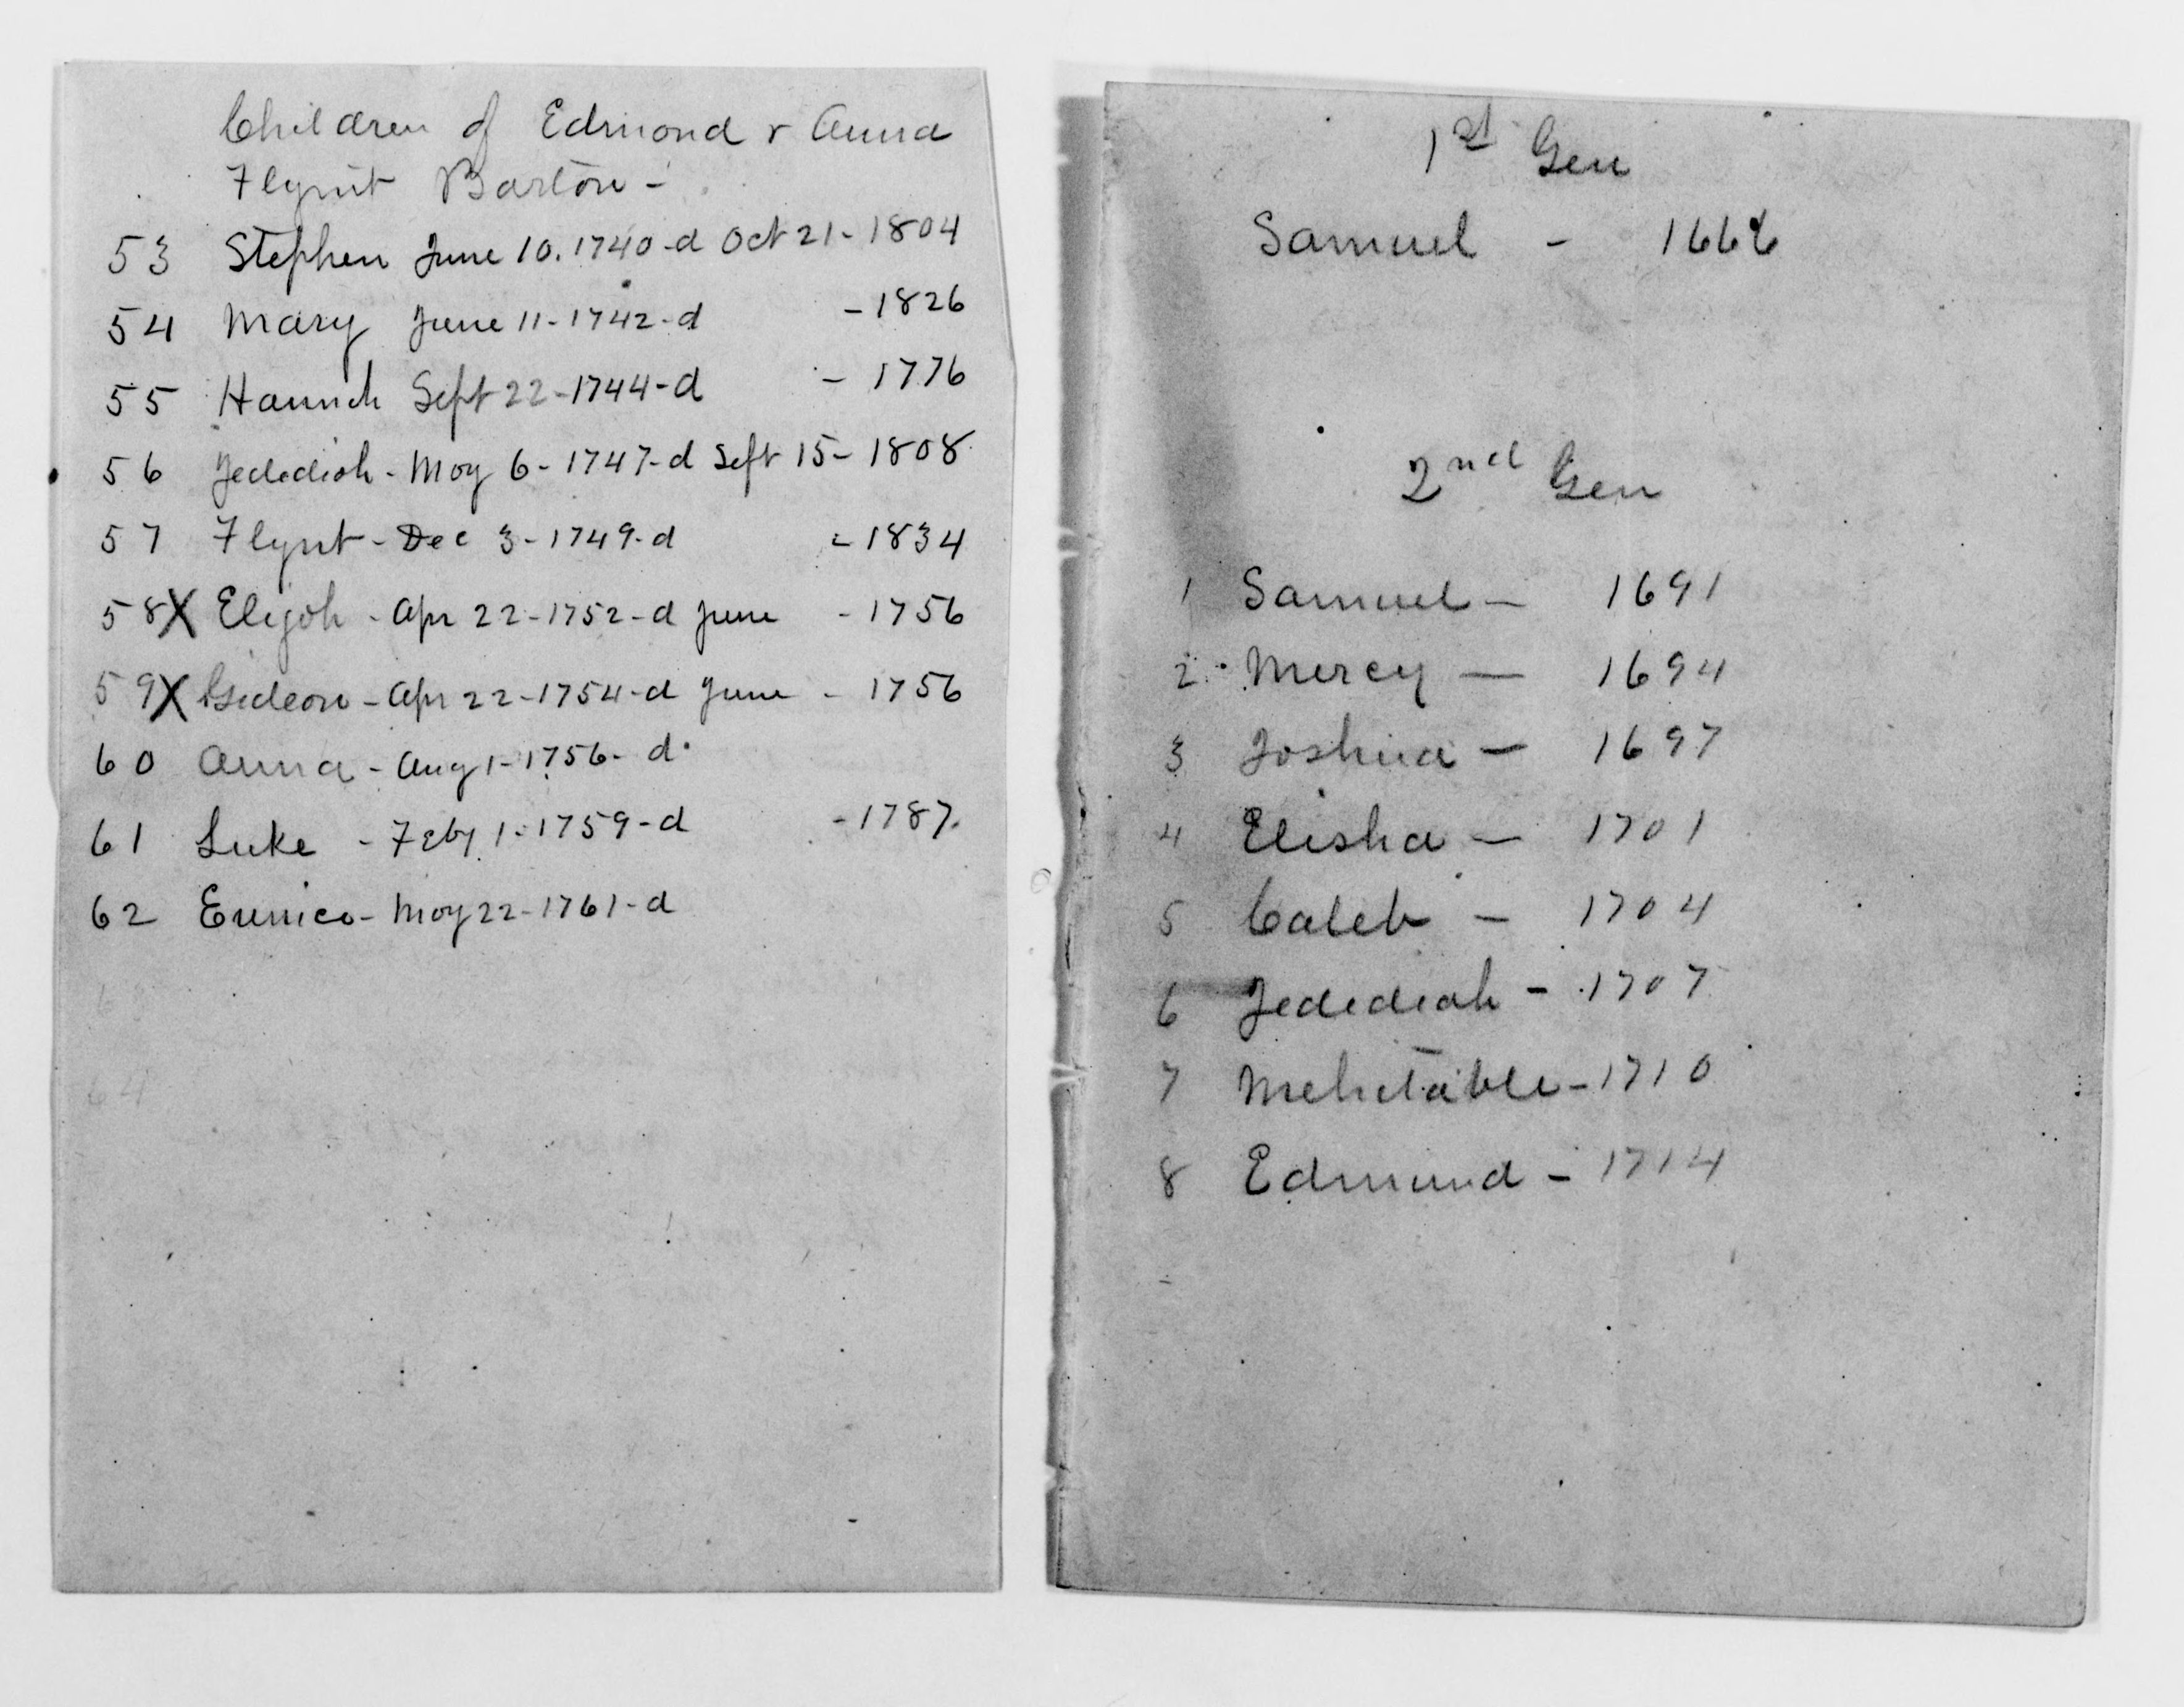 Children of Edmond & Anna
Flynt Barton -
53 Stephen June 10. 1740 - d Oct 21 - 1804
54 Mary June 11 - 1742 - d - 1826
55 Hannah Sept 22 - 1744 - d - 1776
56 Jedediah - May 6 - 1747 - d Sept 15 - 1808
57 Flynt - Dec 3 - 1749 - d - 1834
58X Elijah - Apr 22 - 1752 - d June - 1756
59X Gideon - Apr 22 - 1754 - d June - 1756
60 Anna - Aug 1 - 1756 - d
61 Luke - Feby 1 - 1759 - d - 1787
62 Eunice - May 22 - 1761 - d
63
64
1st Gen
Samuel -
2nd Gen
1 Samuel - 1691
2 Mercy - 1694
3 Joshua - 1697
4 Elisha - 1701
5 Caleb - 1704
6 Jedediah - 1707
7 Mehitable - 1710
8 Edmund - 1714